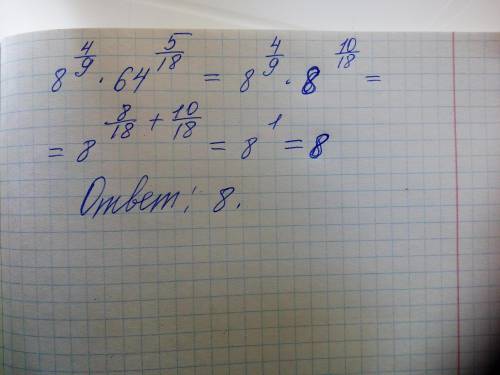 8^{4/9} · 64^{5/18} = 8^{4/9} · 8^{10/18} =
= 8^{8/18 + 10/18} = 8^1 = 8
Ответ: 8.